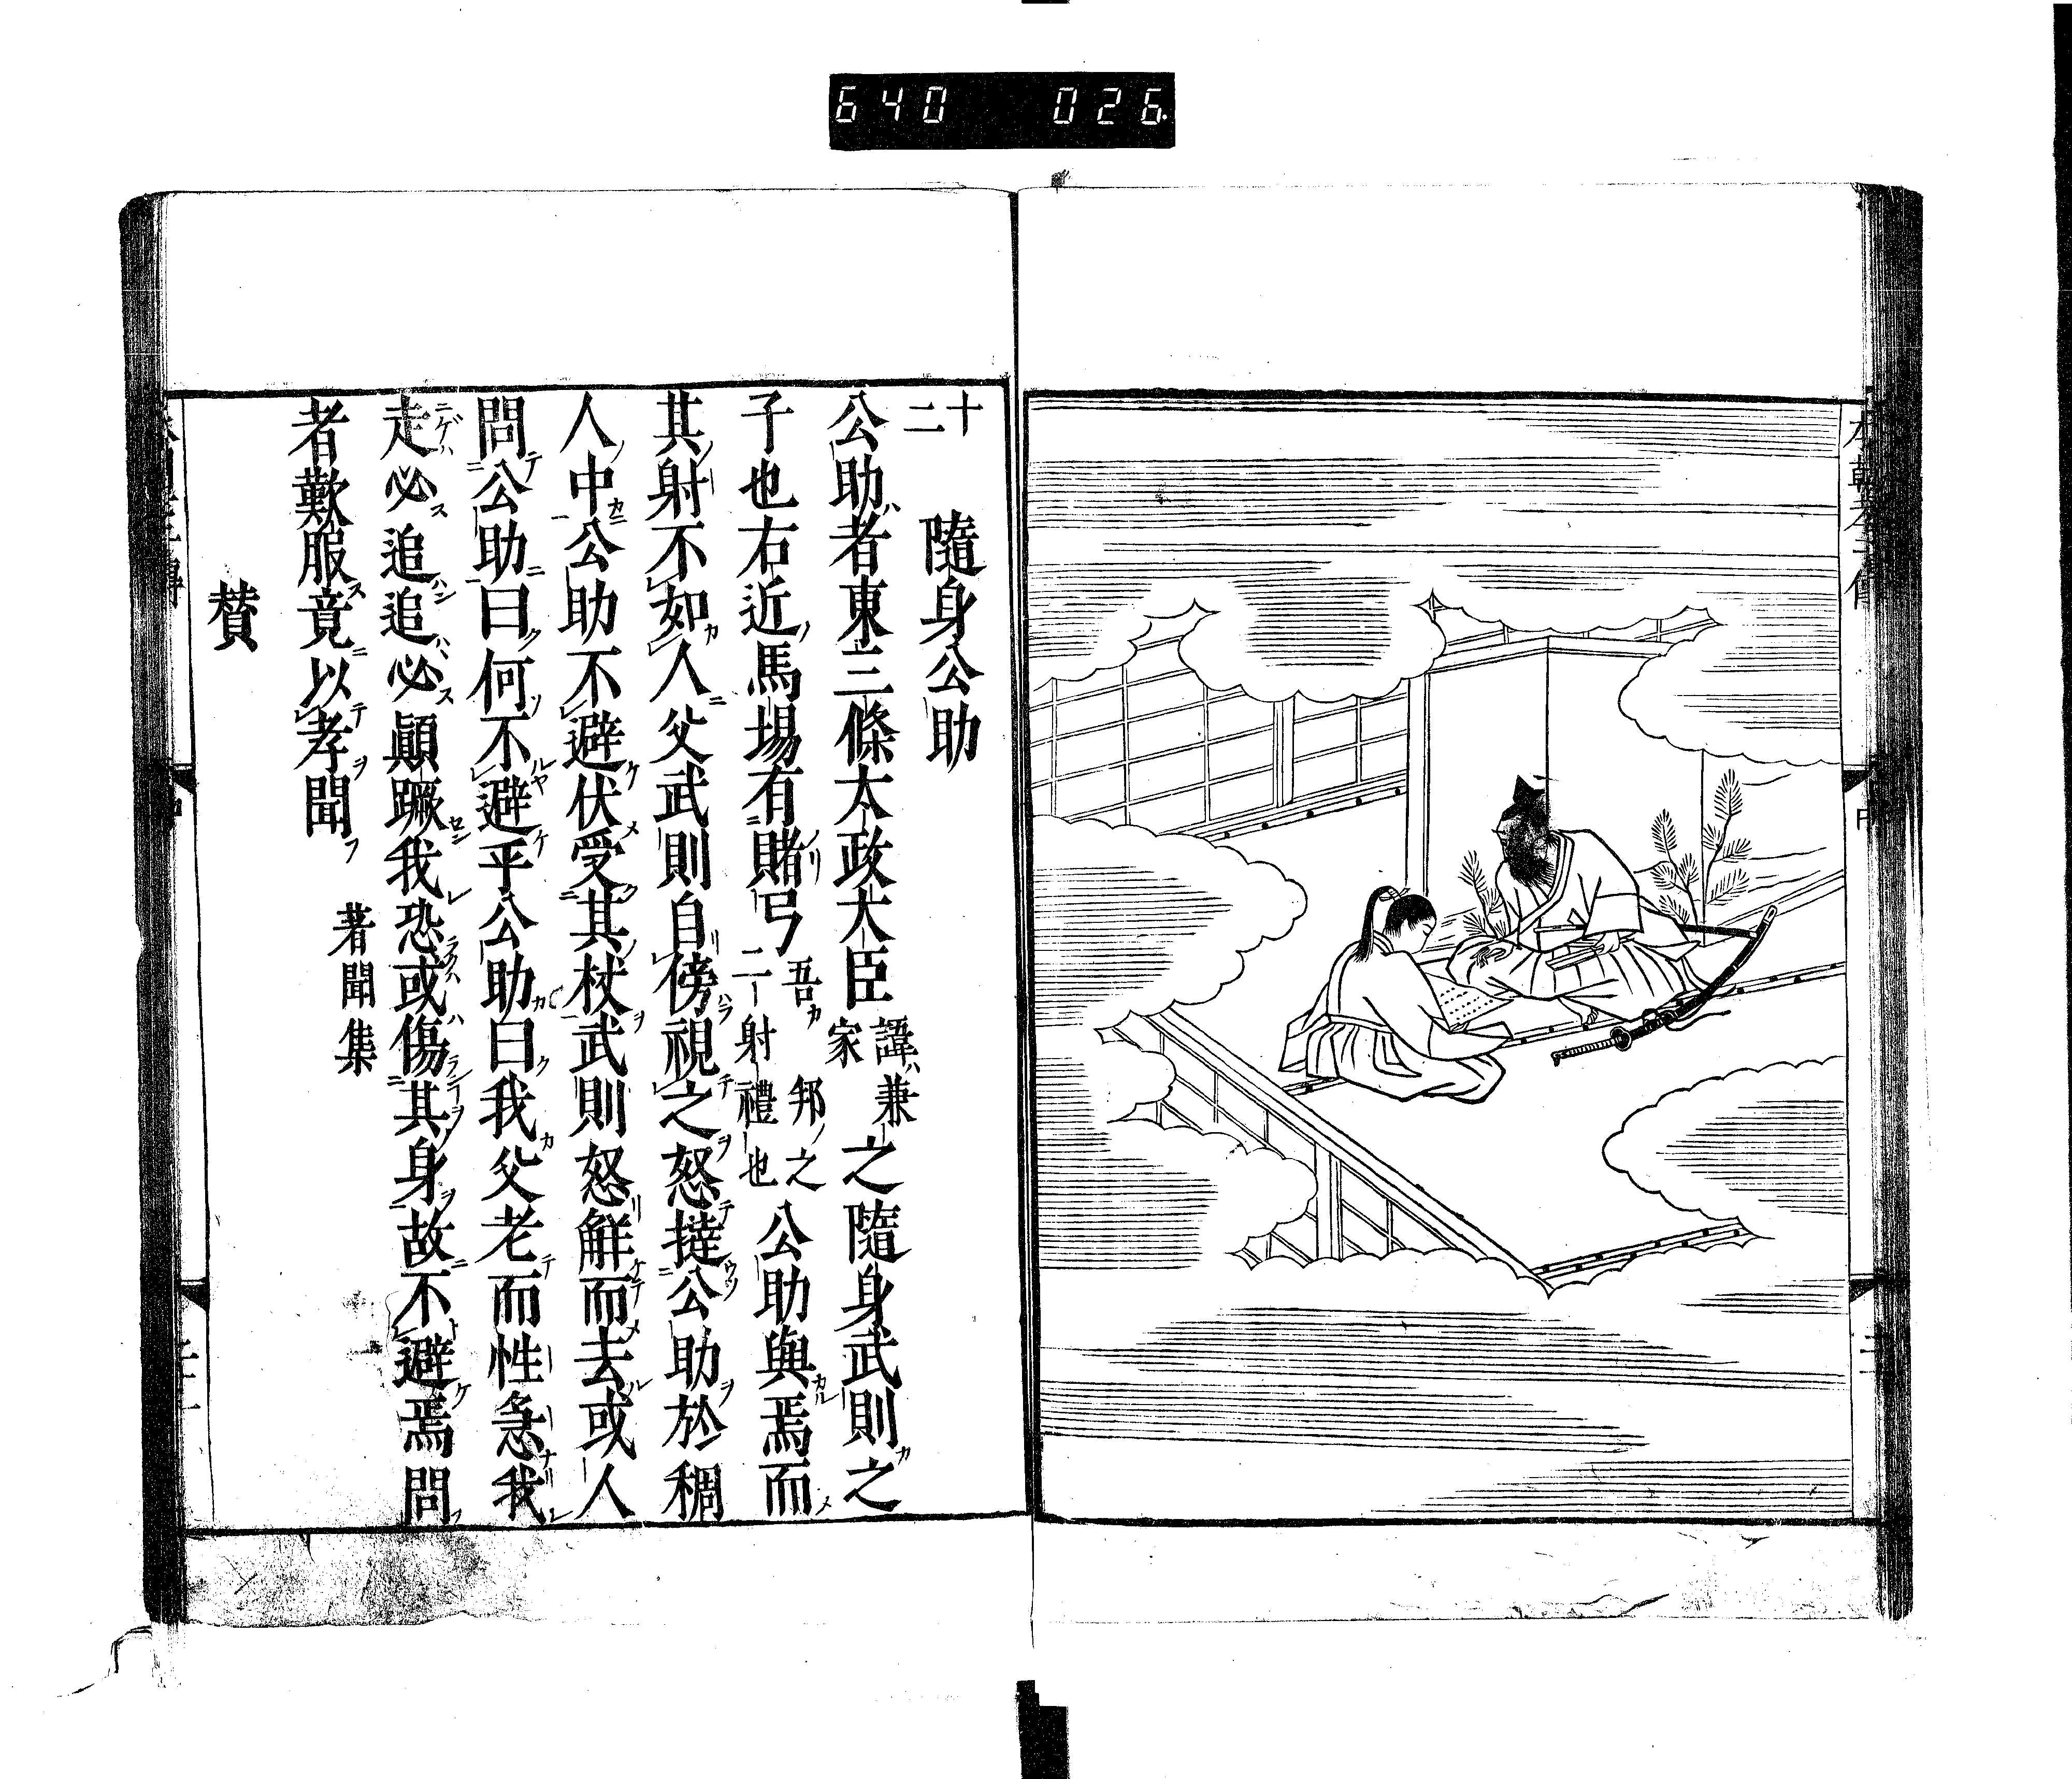 640 026
十二 隨身公助
公助者東三條太政大臣諱兼家之隨身武則之
子也右近馬場有賭弓吾邦之一射禮也公助與焉而
其射不如人父武則自傍視之怒撻公助於稠
人中公助不避伏受其杖武則怒解而去或人
問公助曰何不避乎公助曰我父老而性急我
走必追追必顚蹶我恐或傷其身故不避焉問
者歎服竟以孝聞 著聞集
賛